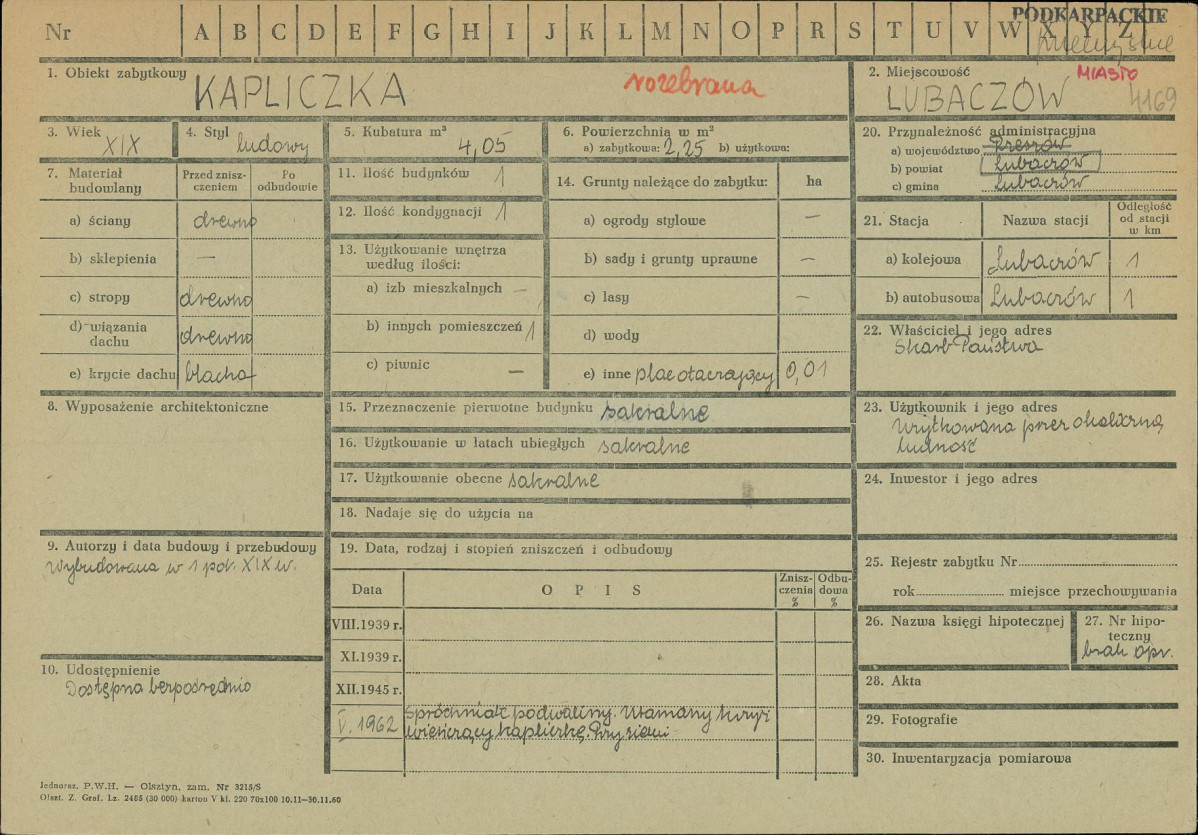 Nr A B C D E F G H I J K L M N O P R S T U V W X Y Z
PODKARPACKIE
1. Obiekt zabytkowy KAPLICZKA rozebrana
2. Miejscowość MIASTO
LUBACZÓW 4169
3. Wiek XIX
4. Styl ludowy
5. Kubatura m³
4,05
6. Powierzchnia w m²
a) zabytkowa: 2,25 b) użytkowa:
20. Przynależność administracyjna
a) województwo Rzeszów
b) powiat Lubaczów
c) gmina Lubaczów
7. Materiał budowlany
Przed znisz-
czeniem
Po
odbudowie
a) ściany drewno
b) sklepienia —
c) stropy drewno
d) wiązania
dachu drewno
e) krycie dachu blacha
11. Ilość budynków 1
12. Ilość kondygnacji 1
13. Użytkowanie wnętrza
według ilości:
a) izb mieszkalnych —
b) innych pomieszczeń 1
c) piwnic —
14. Grunty należące do zabytku: ha
a) ogrody stylowe —
b) sady i grunty uprawne —
c) lasy —
d) wody
e) inne plac otaczający 0,01
21. Stacja Nazwa stacji
Odległość
od stacji
w km
a) kolejowa Lubaczów 1
b) autobusowa Lubaczów 1
22. Właściciel i jego adres
Skarb Państwa
8. Wyposażenie architektoniczne
15. Przeznaczenie pierwotne budynku sakralne
16. Użytkowanie w latach ubiegłych sakralne
17. Użytkowanie obecne sakralne
18. Nadaje się do użycia na
23. Użytkownik i jego adres
Użytkowana przez okoliczną
ludność
24. Inwestor i jego adres
9. Autorzy i data budowy i przebudowy
Wybudowana w 1 poł. XIX w.
10. Udostępnienie
Dostępna bezpośrednio
19. Data, rodzaj i stopień zniszczeń i odbudowy
Data OPIS
Znisz-
czenia
%
Odbu-
dowa
%
VIII.1939 r.
XI.1939 r.
XII.1945 r.
V. 1962 Spróchniałe podwaliny. Ułamany krzyż
wieńczący kapliczkę. Przyziemi
25. Rejestr zabytku Nr
rok miejsce przechowywania
26. Nazwa księgi hipotecznej
27. Nr hipo-
teczny
brak opr.
28. Akta
29. Fotografie
30. Inwentaryzacja pomiarowa
Jednoraz. P.W.H. — Olsztyn, zam. Nr 3215/S
Olszt. Z. Graf. Lz. 2485 (30 000) karton V kl. 220 70x100 10.11—30.11.60